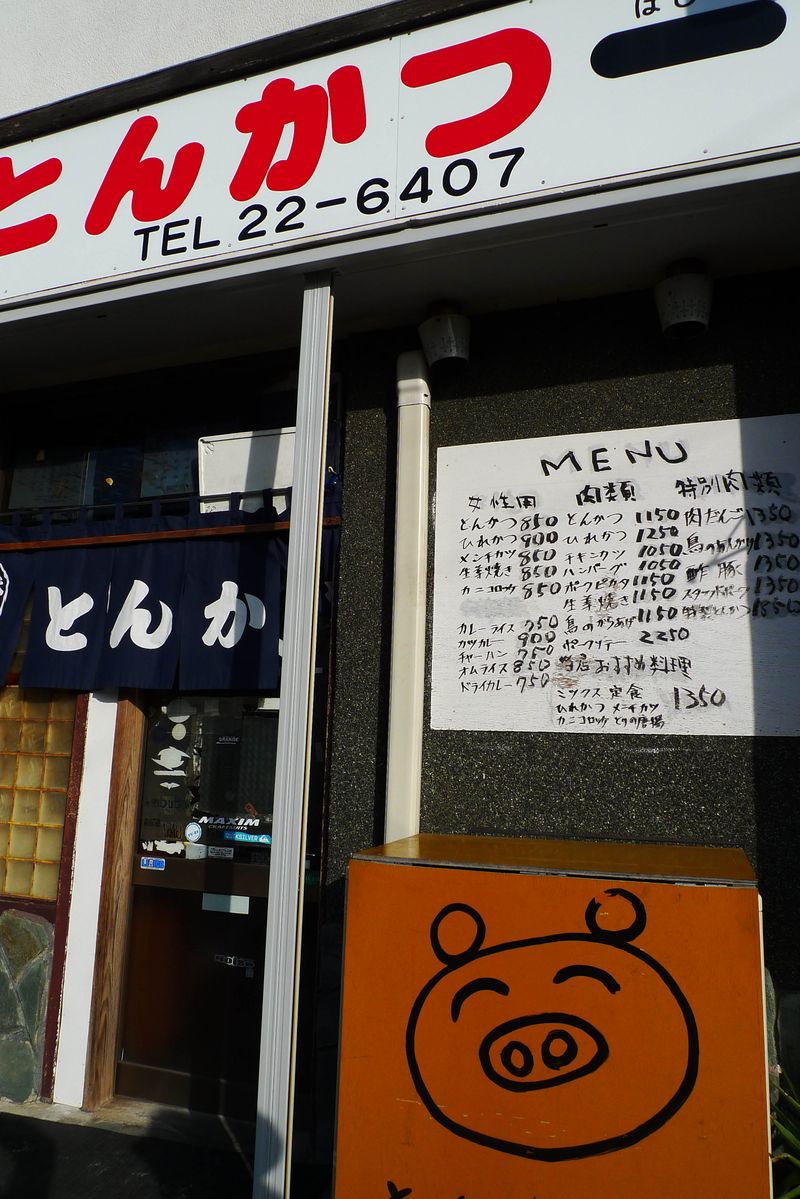 とんかつ一
TEL 22-6407
とんか
MAXIM
MENU
女性用
とんかつ 850
ひれかつ 900
メンチカツ 850
生姜焼き 850
カニコロッケ 850
カレーライス 750
カツカレー 900
チャーハン 750
オムライス 850
ドライカレー 750
肉類
とんかつ 1150
ひれかつ 1250
チキンカツ 1050
ハンバーグ 1050
ポークピカタ 1150
生姜焼き 1150
鳥のからあげ 1150
ポークソテー 2250
当店おすすめ料理
ミックス定食 1350
ひれかつ メーチカツ
カニコロッケ とりの唐揚
特別肉類
肉だんご 1350
鳥のあんかけ 1350
酢豚 1350
スタッフドポーク 1350
特製とんかつ 1850